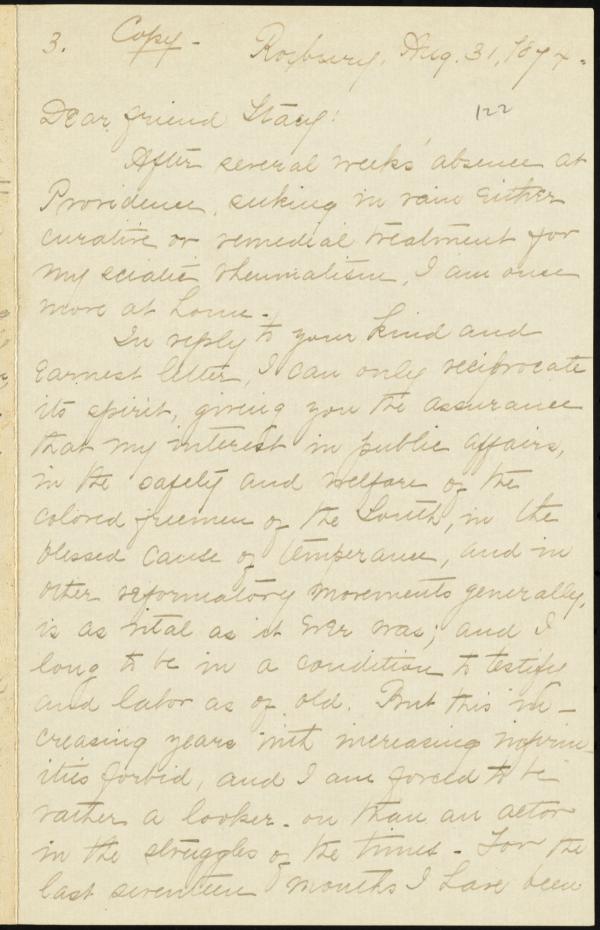 3. Copy - Roxbury, Aug. 31, 1874.
122
Dear friend Stacy:
After several weeks' absence at
Providence, seeking in vain either
curative or remedial treatment for
my sciatic rheumatism, I am once
more at home.
In reply to your kind and
earnest letter, I can only reciprocate
its spirit, giving you the assurance
that my interest in public affairs,
in the safety and welfare of the
colored freemen of the South, in the
blessed cause of temperance, and in
other reformatory movements generally,
is as vital as it ever was; and I
long to be in a condition to testify
and labor as of old. But this in-
creasing years with increasing infirm
ities forbid, and I am forced to be
rather a looker-on than an actor
in the struggles of the times - For the
last seventeen months I have been